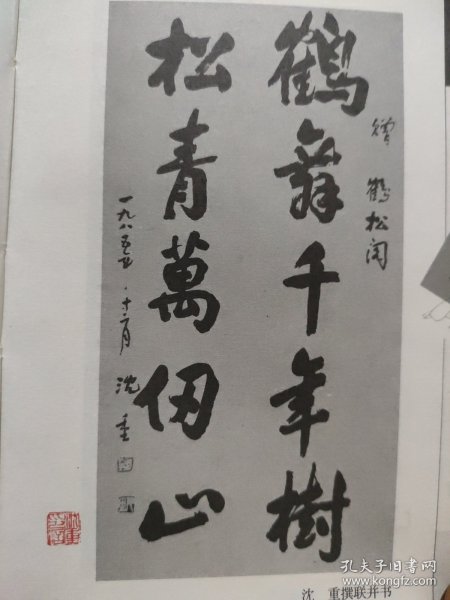 赠 鹤松阁
鶴舞千年樹
松青萬仞山
一九八五年十二月 沈重
沈 重撰联并书
孔夫子旧书网
kongfz.com